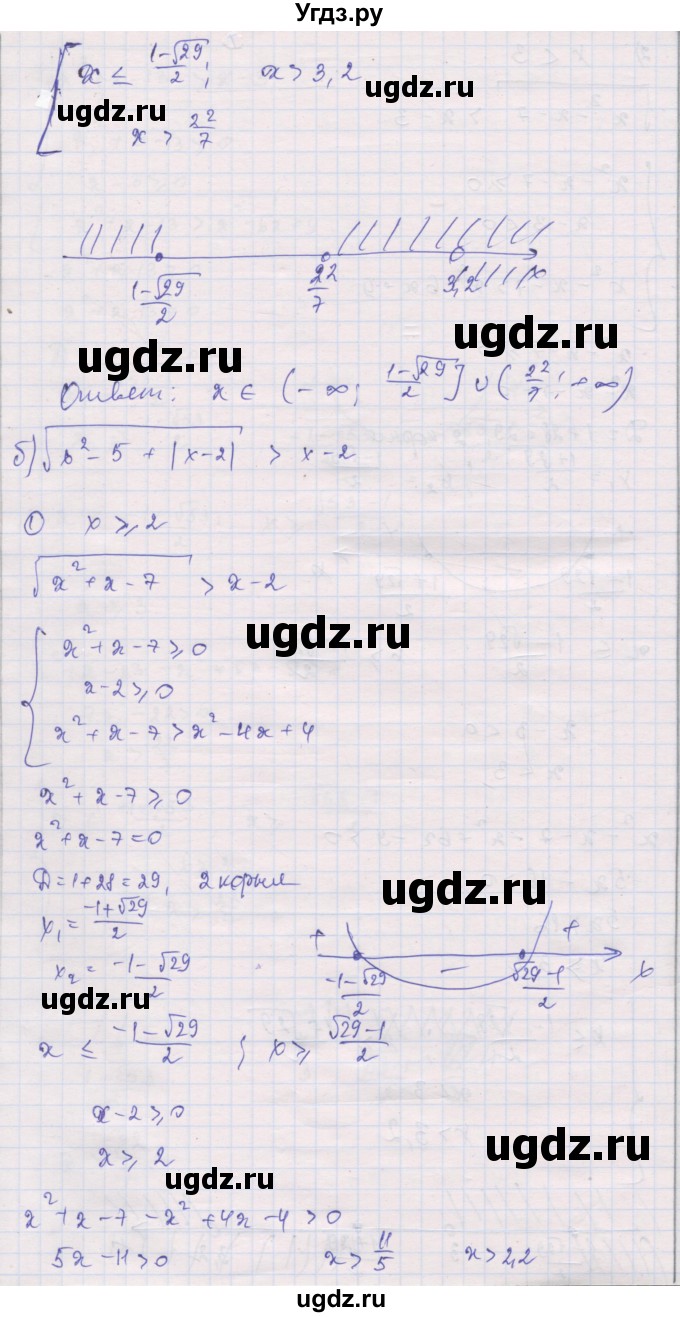 Угдз.ру
x ≤ (1-√29)/2; x > 3,2
ugdz.ru
ugdz.ru
x > 22/7
(1-√29)/2 22/7 3,2 x
ugdz.ru
ugdz.ru
Ответ: x ∈ (-∞; (1-√29)/2] ∪ (22/7; +∞)
б) √(x²-5+|x-2|) > x-2
① x ≥ 2
√(x²+x-7) > x-2
ugdz.ru
{ x²+x-7 ≥ 0
x-2 ≥ 0
x²+x-7 > x²-4x+4
x²+x-7 ≥ 0
x²+x-7=0
Д=1+28=29, 2 корня
ugdz.ru
x₁ = (-1+√29)/2
+ - + x
x₂ = (-1-√29)/2
(-1-√29)/2 (√29-1)/2
ugdz.ru
x ≤ (-1-√29)/2; x ≥ (√29-1)/2
x-2 ≥ 0
ugdz.ru
x ≥ 2
ugdz.ru
x²+x-7-x²+4x-4 > 0
5x-11>0 x > 11/5 x > 2,2
ugdz.ru